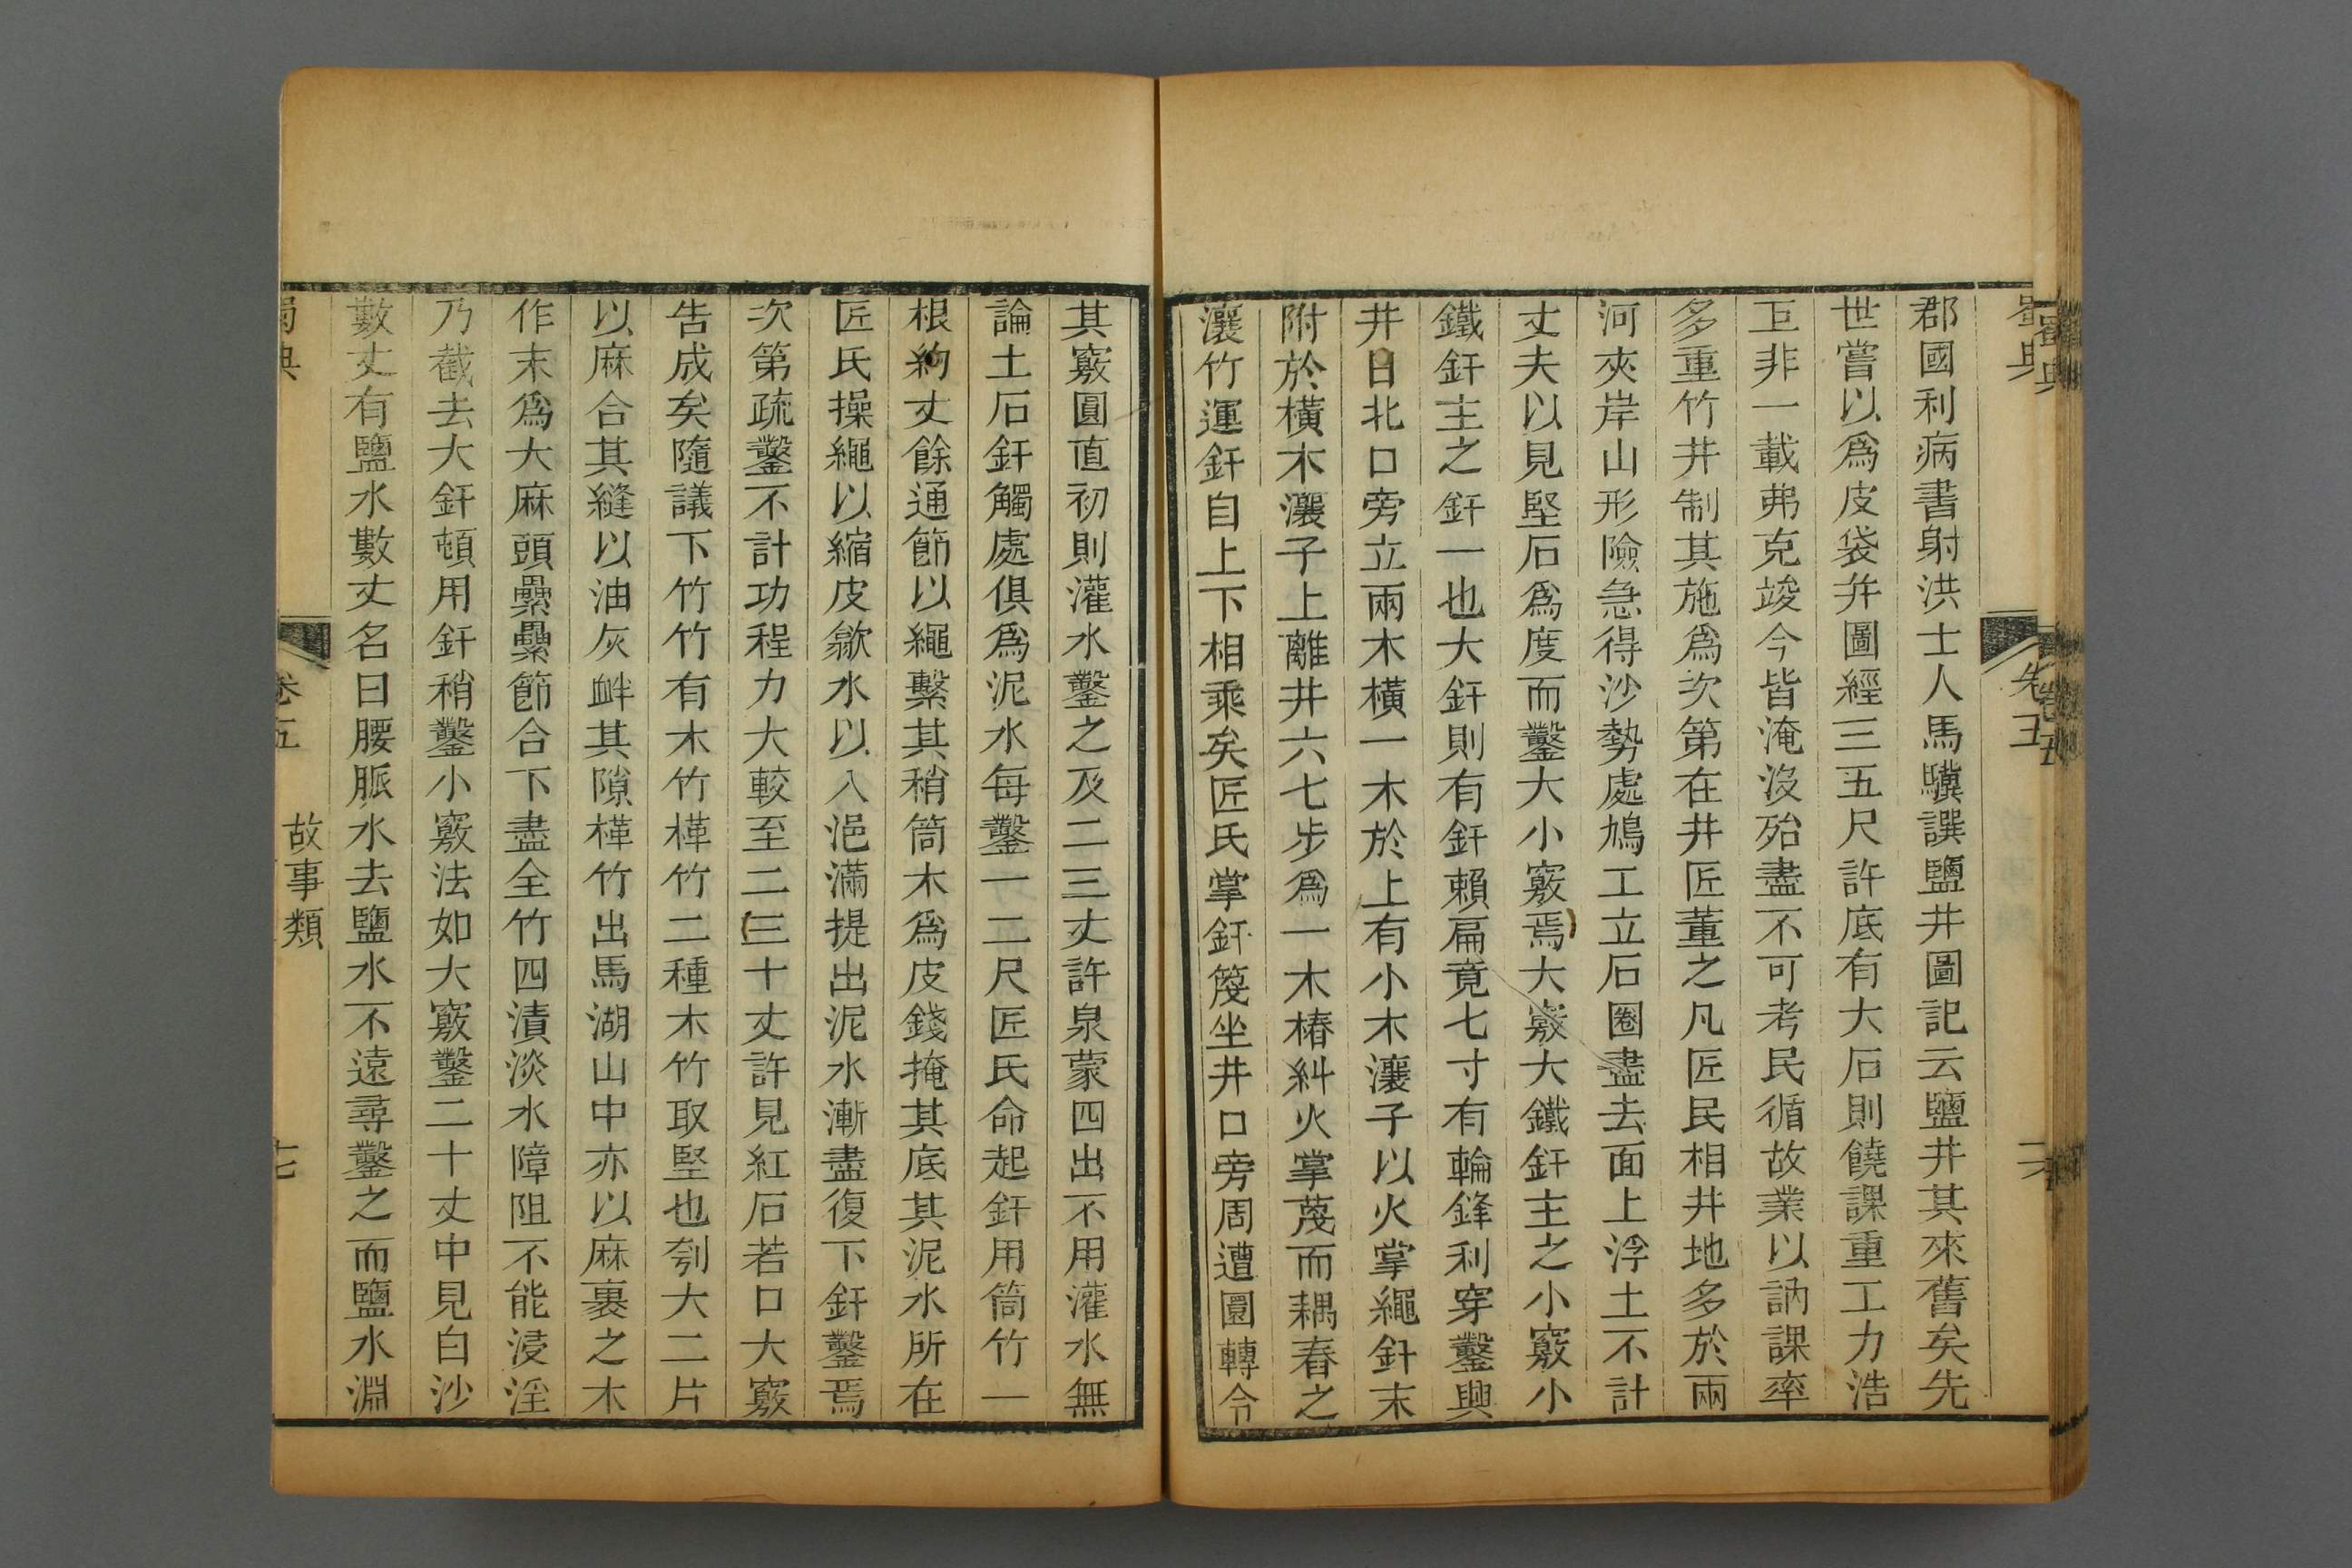 郡國利病書射洪士人馬驥譔鹽井圖記云鹽井其來舊矣先
世嘗以爲皮袋井圖經三五尺許底有大石則饒課重工力浩
亙非一載弗克竣今皆淹沒殆盡不可考民循故業以訥課率
多重竹井制其施爲次第在井匠董之凡匠民相井地多於兩
河夾岸山形險急得沙勢處鳩工立石圈盡去面上浮土不計
丈夫以見堅石爲度而鑿大小竅焉大竅大鐵釬主之小竅小
鐵釬主之釬一也大釬則有釬賴扁竟七寸有輪鋒利穿鑿與
井日北口旁立兩木橫一木於上有小木瀼子以火掌繩釬末
附於橫木瀼子上離井六七步爲一木樁糾火掌蔑而耦舂之
瀼竹運釬自上下相乘矣匠氏掌釬篾坐井口旁周遭圜轉令
其竅圓直初則灌水鑿之及二三丈許泉蒙四出不用灌水無
論土石釬觸處俱爲泥水每鑿一二尺匠氏命起釬用筒竹一
根約丈餘通節以繩繫其稍筒木爲皮錢掩其底其泥水所在
匠氏操繩以縮皮歙水以入浥滿提出泥水漸盡復下釬鑿焉
次第疏鑿不計功程力大較至二三十丈許見紅石若口大竅
告成矣隨議下竹竹有木竹槿竹二種木竹取堅也刳大二片
以麻合其縫以油灰衅其隙槿竹出馬湖山中亦以麻裹之木
作末爲大麻頭纍纍節合下盡全竹四漬淡水障阻不能浸淫
乃截去大釬頓用釬稍鑿小竅法如大竅鑿二十丈中見白沙
數丈有鹽水數丈名曰腰脈水去鹽水不遠尋鑿之而鹽水淵
卷五
故事類